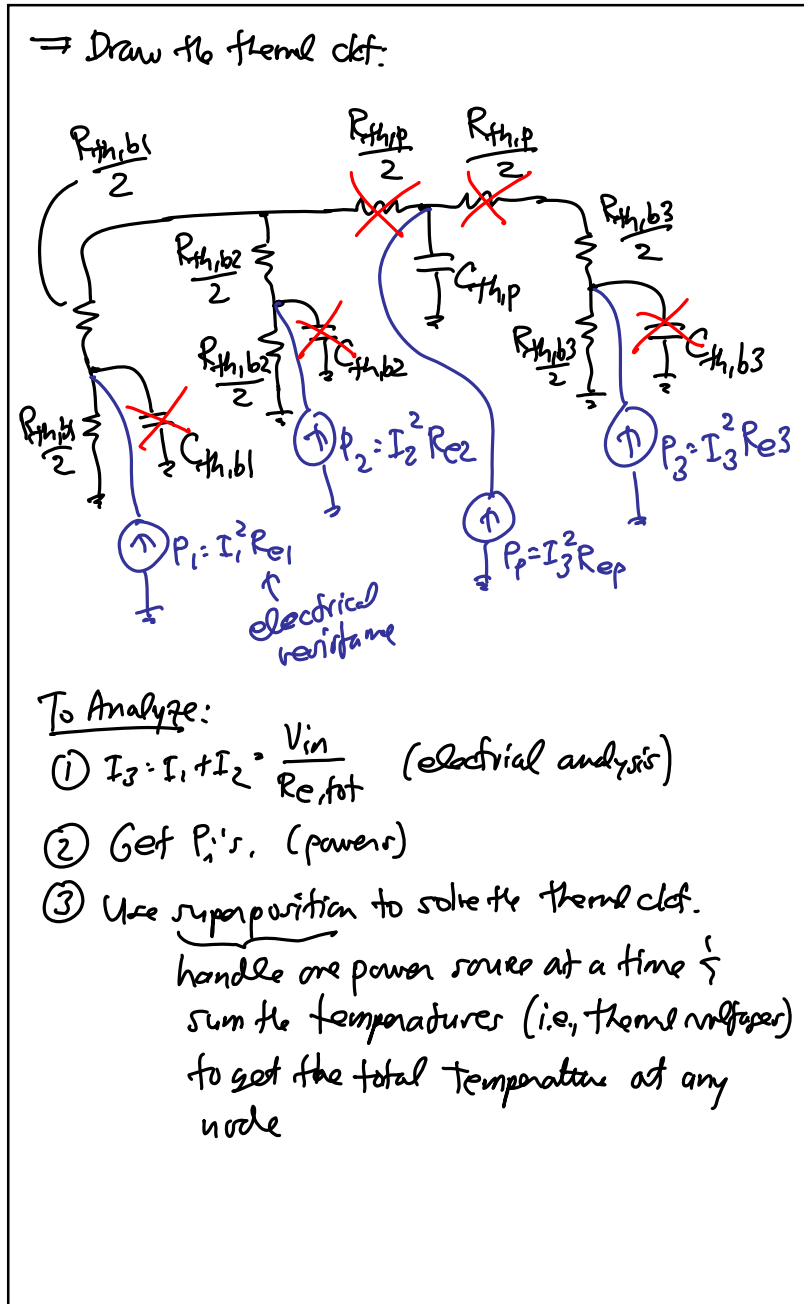 ⇒ Draw the thermal ckt:
R_th,b1/2
R_th,p/2 R_th,p/2
R_th,b2/2
R_th,b3/2
C_th,p
R_th,b2/2 C_th,b2
R_th,b3/2 C_th,b3
R_th,b1/2 C_th,b1
P_2 = I_2^2 R_e2
P_3 = I_3^2 R_e3
P_1 = I_1^2 R_e1
P_p = I_3^2 R_ep
↑
electrical
resistance
To Analyze:
① I_3 = I_1 + I_2 = V_in/R_e,tot (electrical analysis)
② Get P_i's. (powers)
③ Use superposition to solve the thermal ckt.
handle one power source at a time &
sum the temperatures (i.e., thermal voltages)
to get the total temperature at any
node